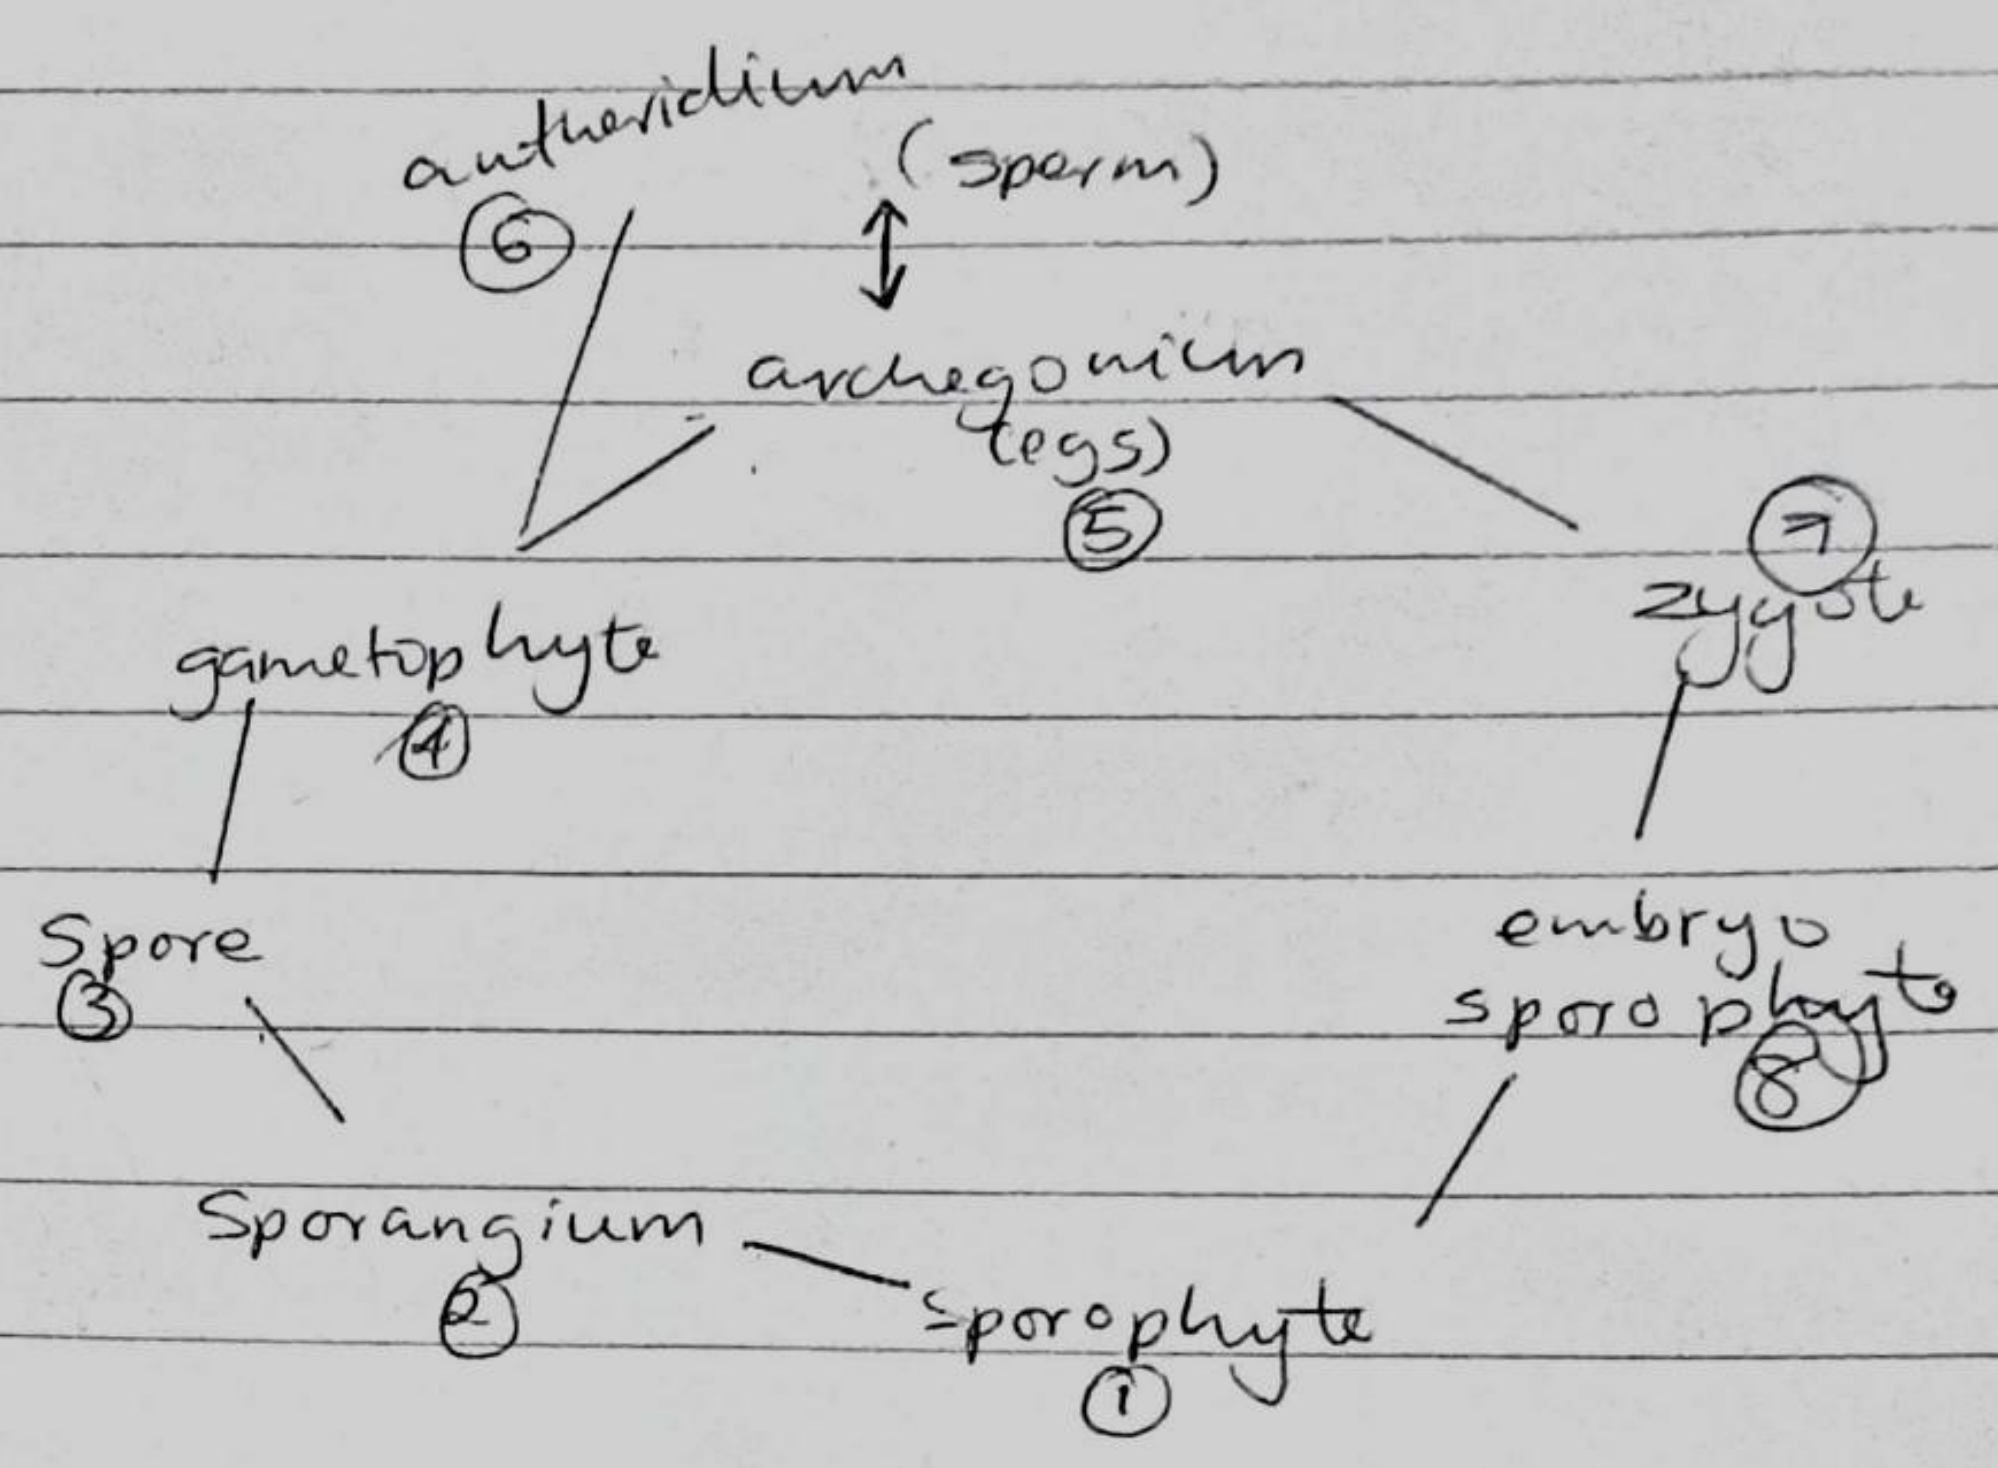 antheridium
(sperm)
6
archegonium
(egs)
5
7
zygote
gametophyte
4
Spore
3
embryo
sporophyte
8
Sporangium
2
sporophyte
1